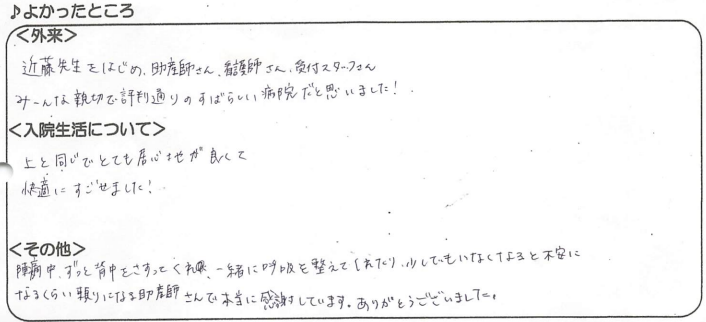 ♪よかったところ
＜外来＞
近藤先生をはじめ、助産師さん、看護師さん、受付スタッフさん
みーんな親切で評判通りのすばらしい病院だと思いました！
＜入院生活について＞
上と同じでとても居心地が良くて
快適にすごせました！
＜その他＞
陣痛中、ずっと背中をさすってくれ、一緒に呼吸を整えてくれたり、少しでもいなくなると不安に
なるくらい頼りになる助産師さんで本当に感謝しています。ありがとうございました。